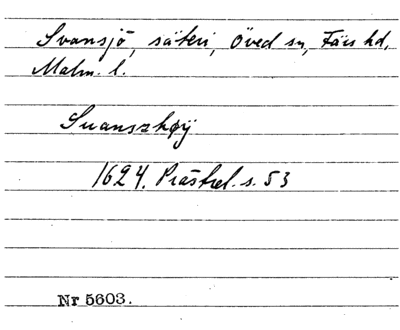 Svansjö, säteri, Öved sn, Färs hd,
Malm. l.
Suanszhøÿ
1624. Prästrel. s. 53
Nr 5603.